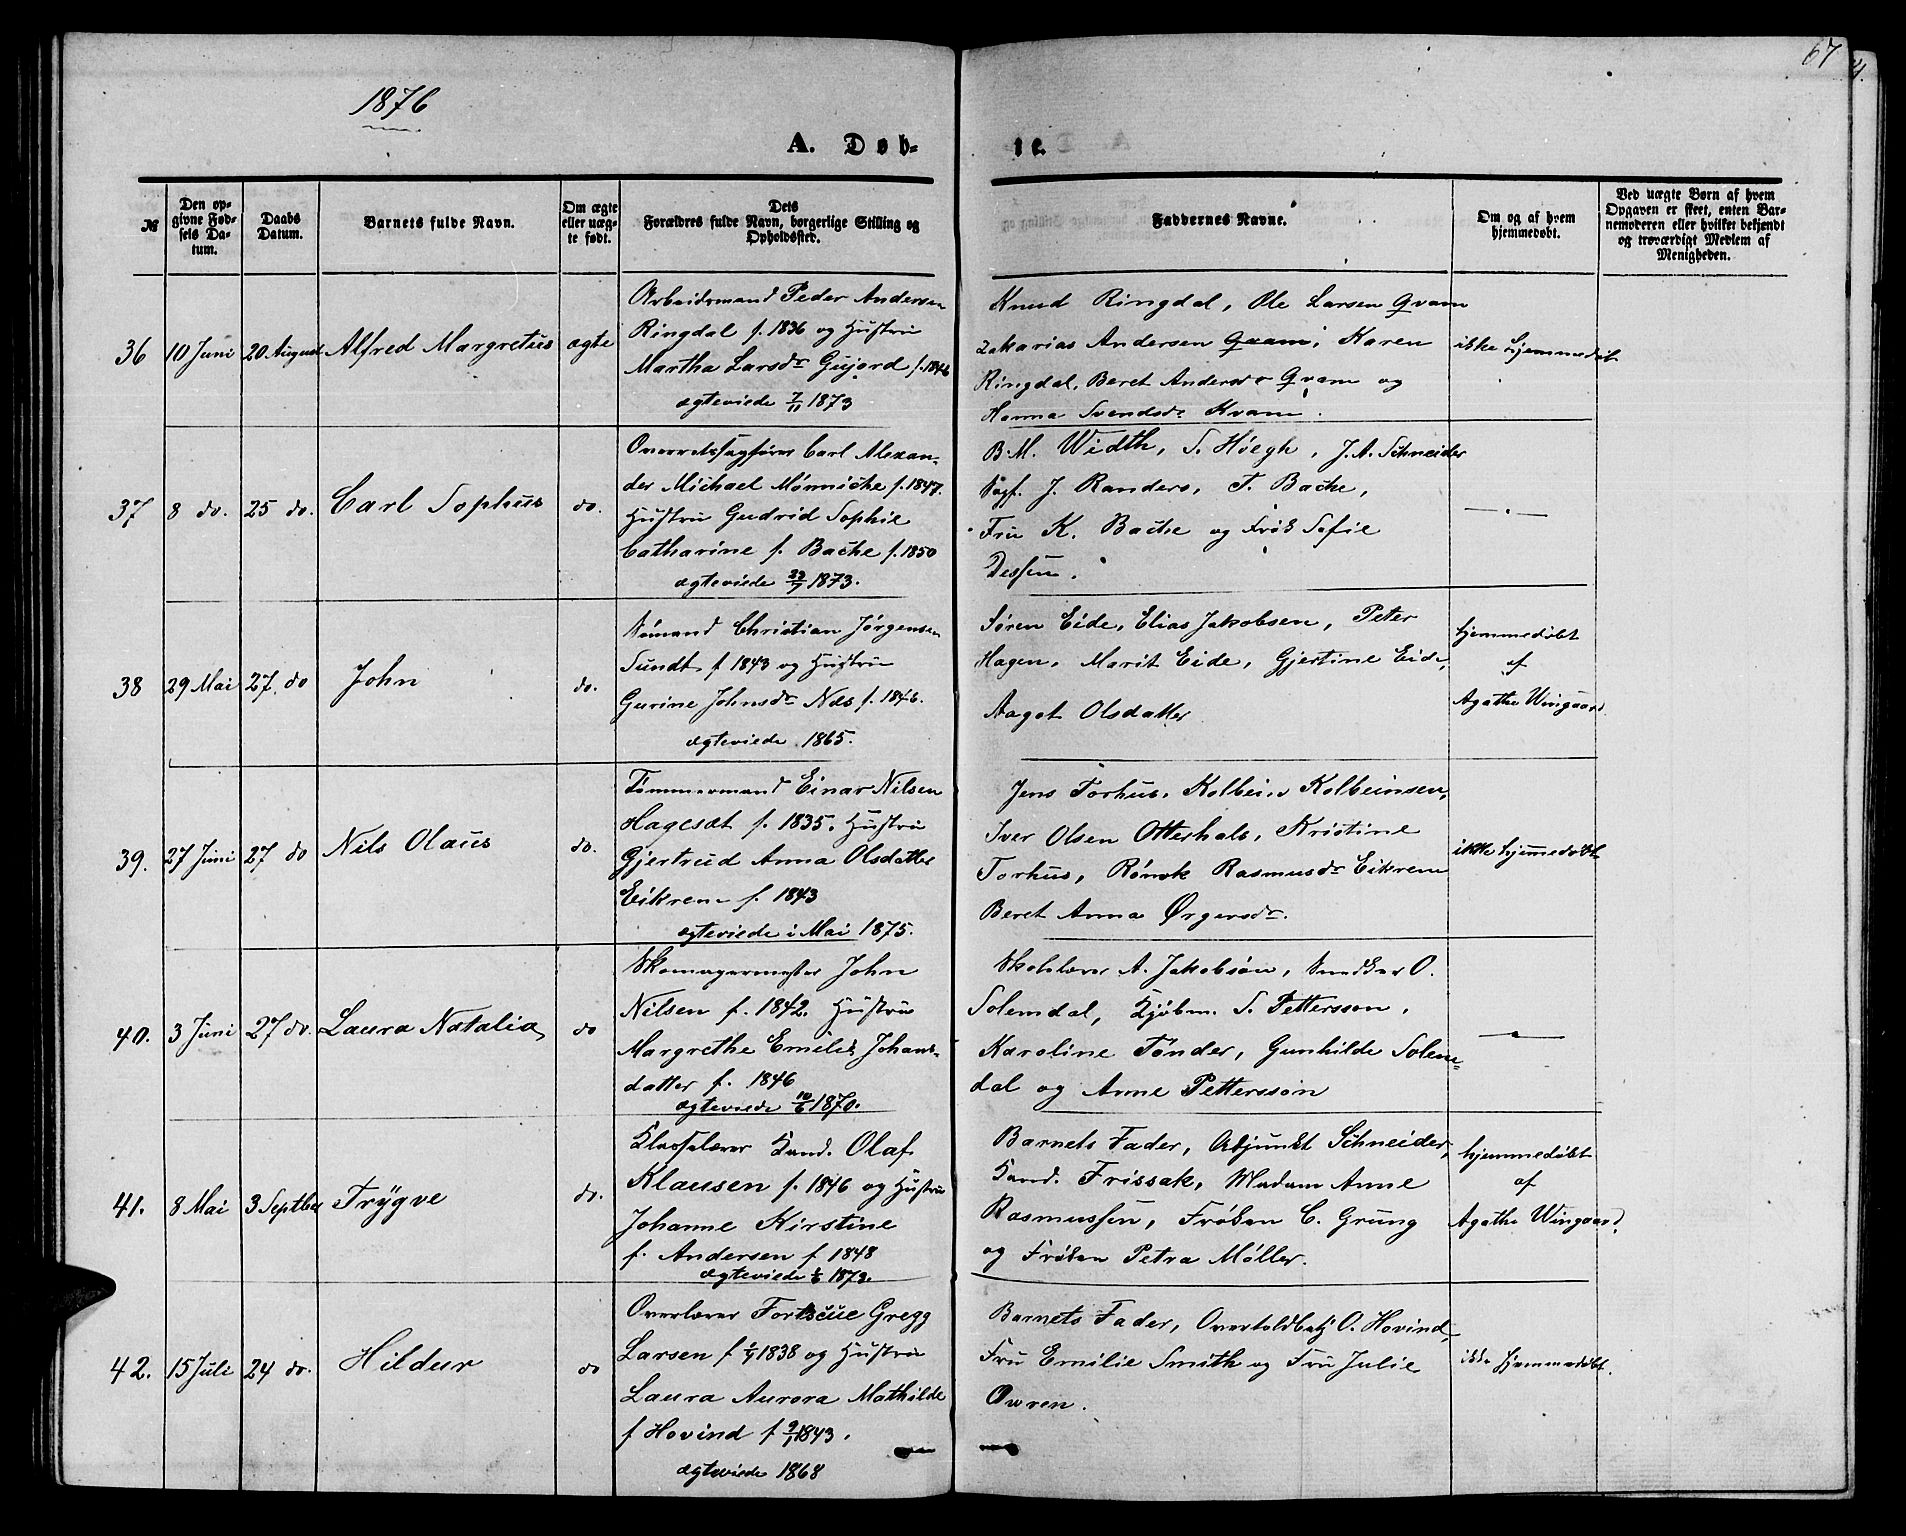 67
1876
A. Døb-
te.
№
Den op-
givne Fød-
sels Da-
tum.
Daabs
Datum.
Barnets fulde Navn.
Om ægte
eller uæg-
te født.
Dets
Forældres fulde Navn, borgerlige Stilling og
Opholdssted.
Faddernes Navne.
Om og af hvem
hjemmedøbt.
Ved uægte Børn af hvem
Opgaven er skeet, enten Bar-
nemoderen eller hvilket bekjendt
og troværdigt Medlem af
Menigheden.
36 10 Juni 20 August Alfred Margretius ægte
Arbeidsmand Peder Andersen
Ringdal f. 1836 og Hustru
Martha Larsdr Gujord f. 1846
ægteviede 7/11 1873
Knud Ringdal, Ole Larsen Qvam
Zakarias Andersen Qvam, Karen
Ringdal, Beret Andersdr Qvam og
Hanna Svendsdr Kvam.
ikke hjemmedøbt
37 8 do. 25 do. Carl Sophus do.
Overretssagfører Carl Alexan-
der Michael Mønniche f. 1847.
Hustru Gudrid Sophie
Catharine f. Bache f. 1850
ægteviede 22/7 1873.
B. M. Width, S. Høegh, J. A. Schneider
Sagf. J. Randers, T. Bache,
Fru K. Bache og Frøk Sofie
Dessen.
— " —
38 29 Mai 27. do John do.
Sømand Christian Jørgensen
Sundt f 1843 og Hustru
Gurine Johnsdr Næs f. 1846.
ægteviede 1865.
Søren Eide, Elias Jakobsen, Peter
Hagen, Marit Eide, Gjertine Eide,
Aagot Olsdatter
hjemmedøbt
af
Agathe Wingaard.
39. 27 Juni 27 do Nils Olaus do.
Tømmermand Einar Nilsen
Hagesæt f. 1835. Hustru
Gjertrud Anna Olsdatter
Eikrem f. 1843
ægteviede i Mai 1875.
Jens Torhus, Kolbein Kolbeinsen,
Iver Olsen Otterhals, Kristine
Torhus, Rønok Rasmusdr Eikrem
Beret Anna Ørgersdr.
ikke hjemmedøbt
40. 3 Juni 27 do. Laura Natalia do
Skomagermester John
Nilsen f. 1842. Hustru
Margrethe Emilie Johans-
datter f. 1846
ægteviede 10/6 1870.
Skolelærer A. Jakobson, Snedker O.
Solemdal, Kjøbm. S. Pettersson,
Karoline Tønder, Gunhilde Solem-
dal og Anne Pettersson
— " —
41. 8 Mai 3 Septber Trygve do.
Klasselærer Kand. Olaf
Klausen f. 1846 og Hustru
Johanne Kirstine
f. Andersen f 1848
ægteviede 1873.
Barnets Fader, Adjunkt Schneider,
Kand. Frissak, Madam Anne
Rasmussen, Frøken C. Grung
og Frøken Petra Møller.
hjemmedøbt
af
Agathe Wingaard.
42. 15 Juli 24 do. Hildur do
Overlærer Fortscue Gregg
Larsen f 1838 og Hustru
Laura Aurora Mathilde
f Hovind f 9/1 1843.
ægteviede 1868
Barnets Fader, Overtoldbetj O. Hovind,
Fru Emilie Smith og Fru Julie
Owren.
ikke hjemmedøbt.